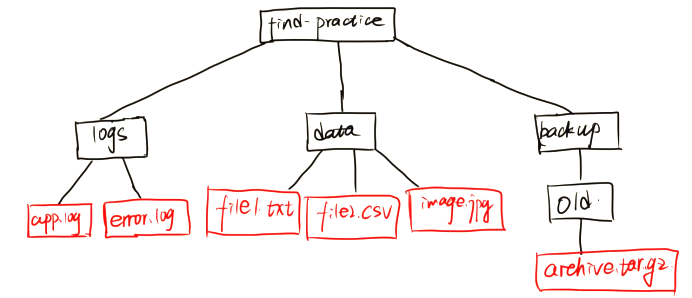 find-practice
logs
data
backup
app.log
error.log
file1.txt
file2.csv
image.jpg
old.
archive.tar.gz